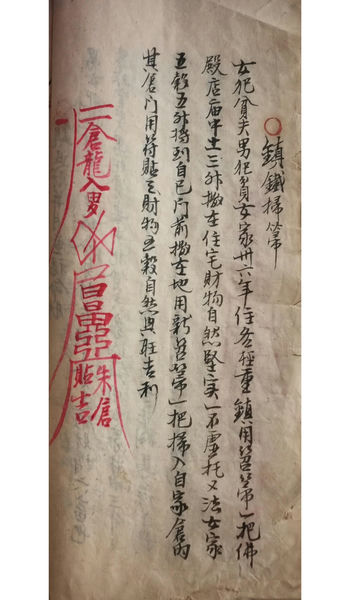 鎮鐵掃箒
女犯貧夫男犯貧女家卅六年住各輕重鎮用笤箒一把佛
殿店庙中土三升撒在住宅財物自然堅实一不虛托又法女家
五穀五升持到自己门前撒在地用新笤箒一把掃入自家倉内
其倉门用符貼之財物五穀自然興旺吉利
倉龍入
朱倉
貼吉